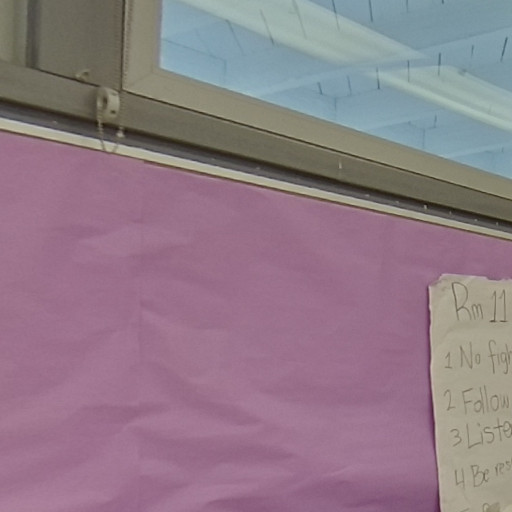 Rm 11
1 No figh
2 Follow
3 Liste
4 Be res